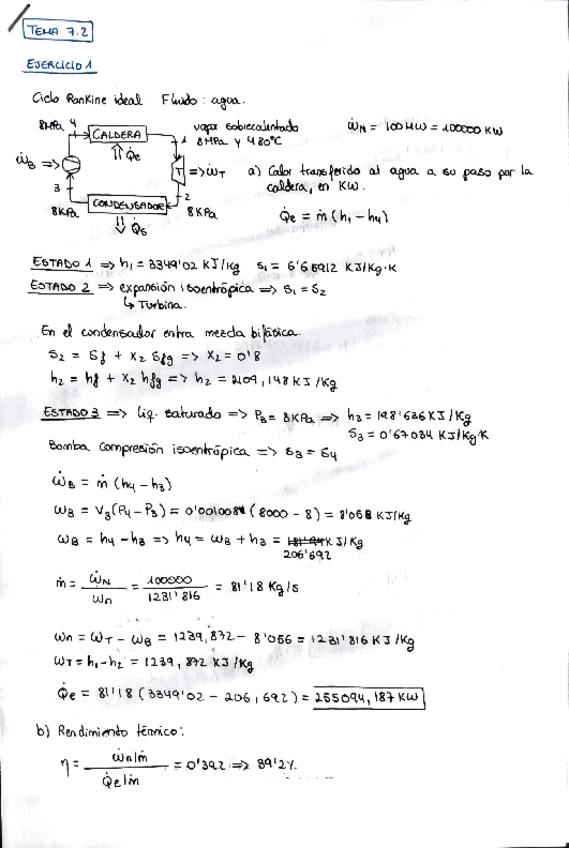 TEMA 7.2
EJERCICIO 1
Ciclo Rankine ideal Fluido: agua.
8MPa 4 CALDERA 1 vapor sobrecalentado 8MPa y 480°C ẇN = 100 MW = 100000 KW
Q̇e
ẇB => T => ẇT a) Calor transferido al agua a su paso por la
caldera, en KW.
3 CONDENSADOR 2
8KPa Q̇s 8KPa Q̇e = ṁ(h1 - h4)
ESTADO 1 => h1 = 3349'02 KJ/Kg s1 = 6'65912 KJ/Kg·K
ESTADO 2 => expansión isoentrópica => s1 = s2
↳ Turbina.
En el condensador entra mezcla bifásica.
s2 = sf + x2 sfg => x2 = 0'8
h2 = hf + x2 hfg => h2 = 2109,148 KJ/Kg
ESTADO 3 => Liq. saturado => P3 = 8KPa => h3 = 198'636 KJ/Kg
s3 = 0'67034 KJ/Kg·K
Bomba compresión isoentrópica => s3 = s4
ẇB = ṁ(h4 - h3)
wB = v3(P4 - P3) = (8000 - 8) = 8'056 KJ/Kg
wB = h4 - h3 => h4 = wB + h3 = KJ/Kg
206'692
ṁ = ẇN / wn = 100000 / 1231'816 = 81'18 Kg/s
wn = wT - wB = 1239,872 - 8'056 = 1231'816 KJ/Kg
wT = h1 - h2 = 1239,872 KJ/Kg
Q̇e = 81'18 (3349'02 - 206,692) = 255094,187 KW
b) Rendimiento térmico:
η = ẇn/ṁ / Q̇e/ṁ = 0'392 => 39'2%.